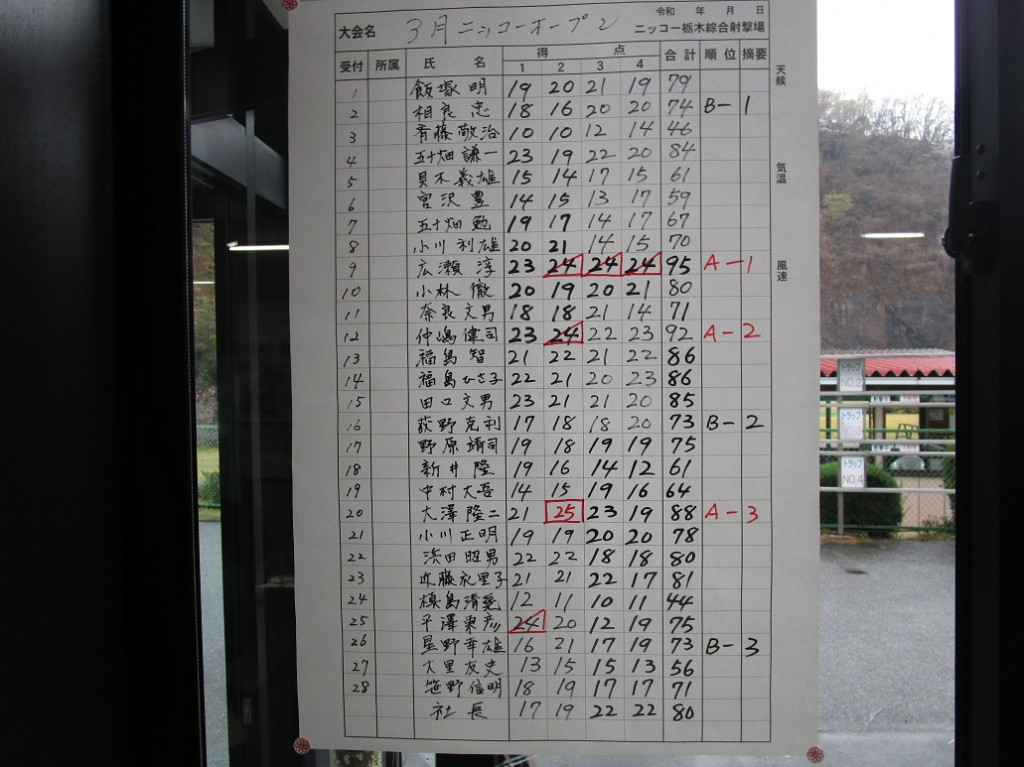 令和 年 月 日
大会名 3月ニッコーオープン ニッコー栃木綜合射撃場
受付 所属 氏 名 得 点 合計 順位 摘要
1 2 3 4
天候
気温
風速
1 飯塚 明 19 20 21 19 79
2 相良 忠 18 16 20 20 74 B-1
3 斉藤 敬治 10 10 12 14 46
4 五十畑 謙一 23 19 22 20 84
5 貝木 義雄 15 14 17 15 61
6 宮沢 豊 14 15 13 17 59
7 五十畑 勉 19 17 14 17 67
8 小川 利雄 20 21 14 15 70
9 広瀬 淳 23 24 24 24 95 A-1
10 小林 徹 20 19 20 21 80
11 奈良 文男 18 18 21 14 71
12 仲嶋 健司 23 24 22 23 92 A-2
13 福島 智 21 22 21 22 86
14 福島 ひさ子 22 21 20 23 86
15 田口 文男 23 21 21 20 85
16 荻野 克利 17 18 18 20 73 B-2
17 野原 靖司 19 18 19 19 75
18 新井 隆 19 16 14 12 61
19 中村 大吾 14 15 19 16 64
20 大澤 隆二 21 25 23 19 88 A-3
21 小川 正明 19 19 20 20 78
22 浜田 昭男 22 22 18 18 80
23 近藤 永里子 21 21 22 17 81
24 槙島 清 12 11 10 11 44
25 平澤 東彦 24 20 12 19 75
26 星野 幸雄 16 21 17 19 73 B-3
27 大里 友史 13 15 15 13 56
28 笹野 信明 18 19 17 17 71
社長 17 19 22 22 80
トラップ NO.2
トラップ
トラップ NO.4